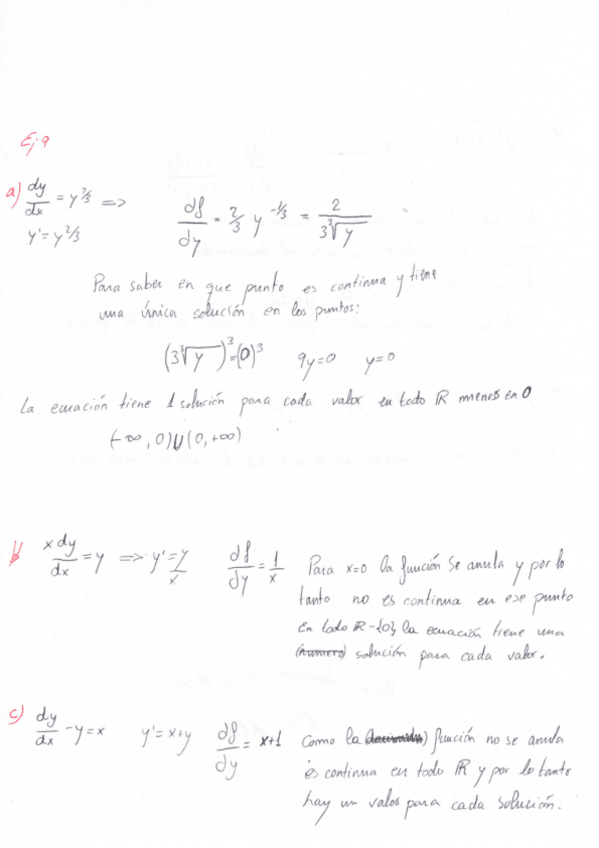 Ej 9
a) dy/dx = y^2/3 => df/dy = 2/3 y^-1/3 = 2/(3∛y)
y' = y^2/3
Para saber en que punto es continua y tiene
una única solución en los puntos:
(3∛y)^3 = (0)^3 9y=0 y=0
La ecuación tiene 1 solución para cada valor en todo ℝ menos en 0
(-∞, 0) U (0, +∞)
b) x dy/dx = y => y' = y/x df/dy = 1/x Para x=0 la función se anula y por lo
tanto no es continua en ese punto
En todo ℝ-{0} la ecuación tiene una
(numero) solución para cada valor.
c) dy/dx - y = x y' = x+y df/dy = x+1 Como la función no se anula
és continua en todo ℝ y por lo tanto
hay un valos para cada solución.